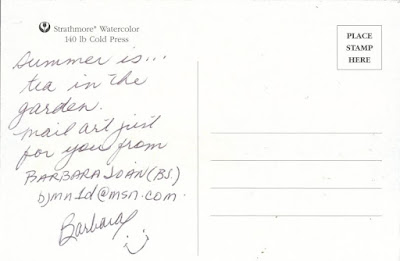 Strathmore® Watercolor
140 lb Cold Press
PLACE
STAMP
HERE
Summer is...
tea in the
garden.
mail art just
for you from
BARBARA JOAN (BJ.)
bjmn1d@msn.com.
Barbara